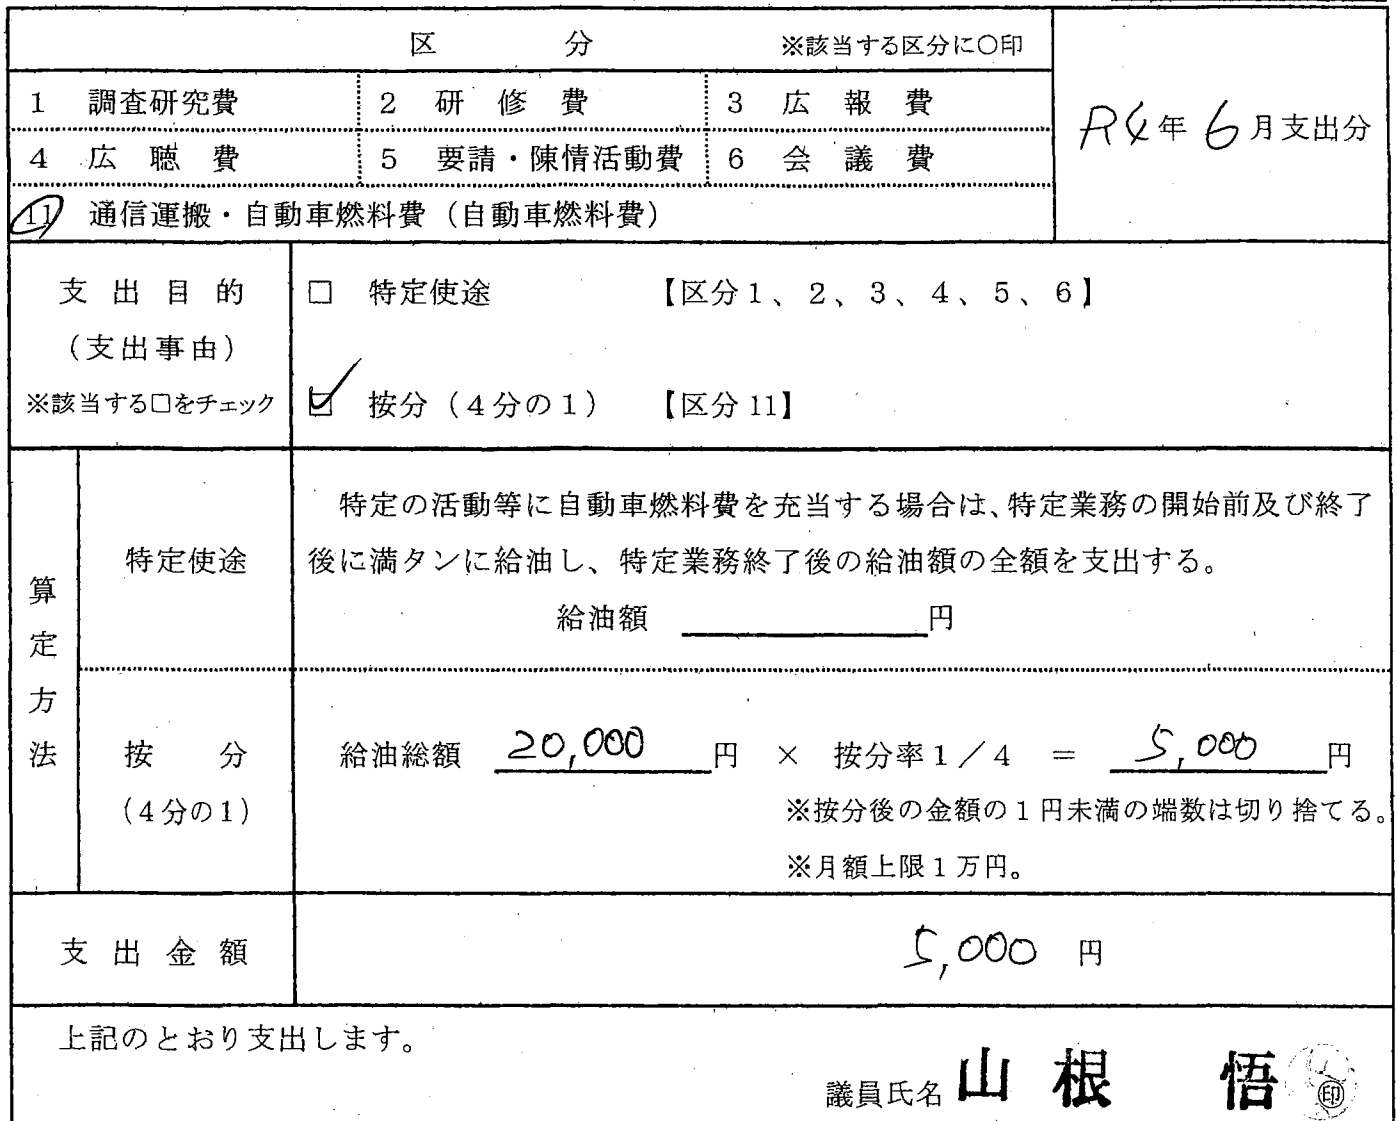 区 分 ※該当する区分に〇印
1 調査研究費 2 研修費 3 広報費
R4年6月支出分
4 広聴費 5 要請・陳情活動費 6 会議費
11 通信運搬・自動車燃料費（自動車燃料費）
支出目的
（支出事由）
※該当する□をチェック
□ 特定使途 【区分1、2、3、4、5、6】
☑ 按分（4分の1） 【区分11】
算定方法
特定使途
特定の活動等に自動車燃料費を充当する場合は、特定業務の開始前及び終了
後に満タンに給油し、特定業務終了後の給油額の全額を支出する。
給油額 円
按分
（4分の1）
給油総額 20,000 円 × 按分率1／4 ＝ 5,000 円
※按分後の金額の1円未満の端数は切り捨てる。
※月額上限1万円。
支出金額 5,000 円
上記のとおり支出します。
議員氏名 山根 悟 ㊞